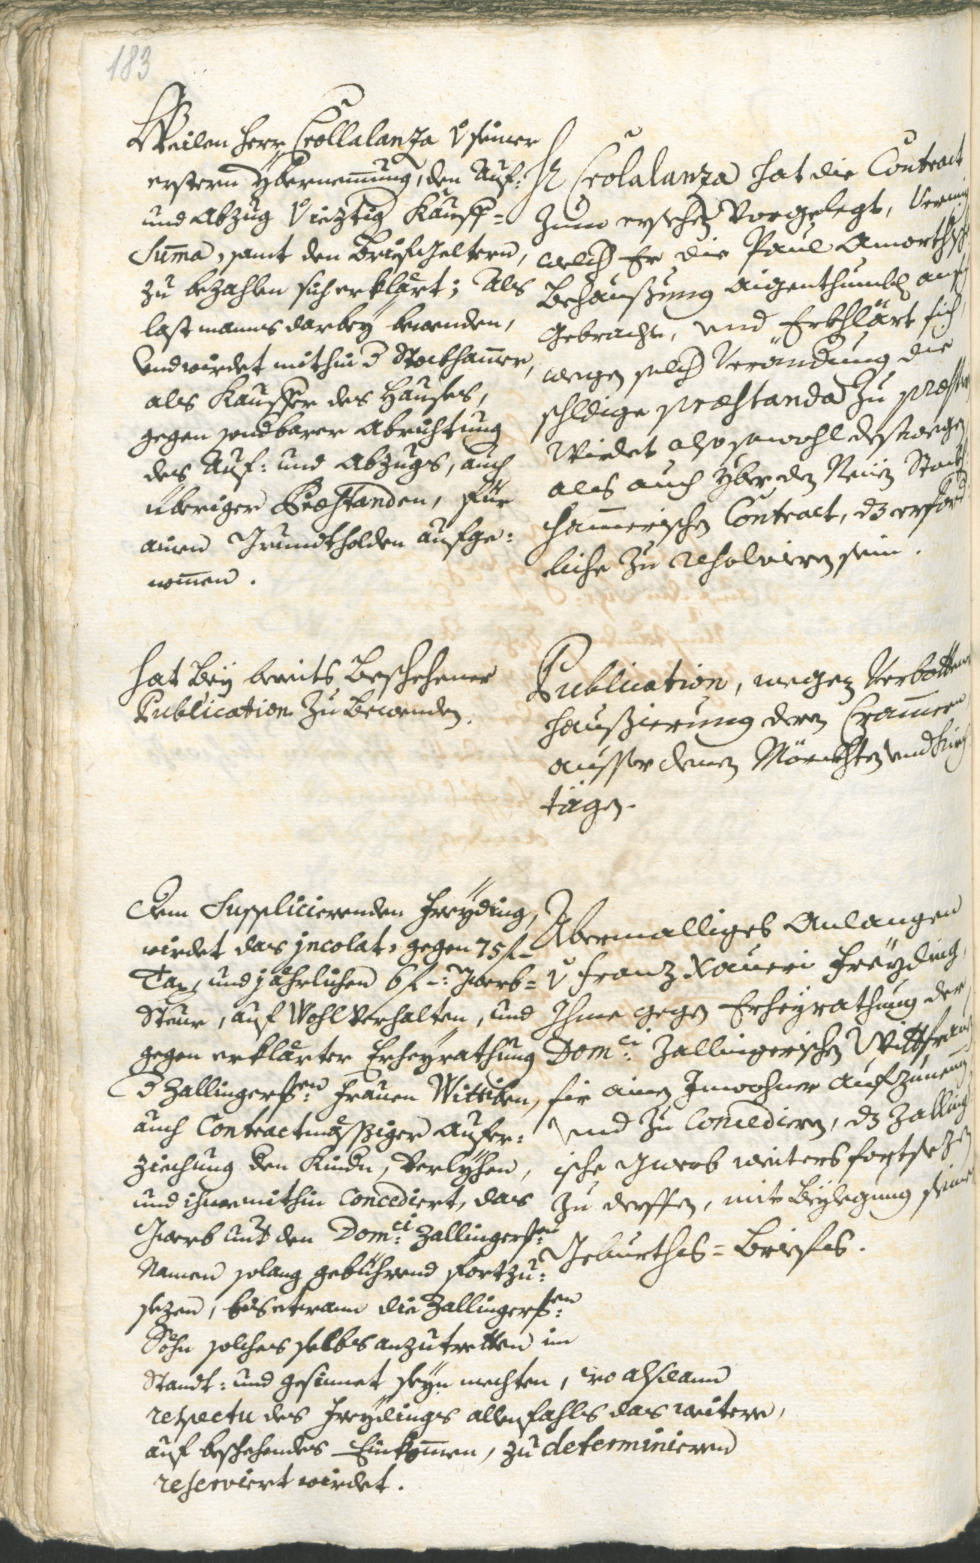 183
Weilen Herr Crollalanza v seiner
erstern ybernemmung, den Auf:
und Abzug v iezig Kauff=
Suma, samt den Briefgeltern,
zu bezahlen sich erklärt; Als
last mans darbey bewenden,
und wirdet mithin d Stockhamer,
als Kauffer des Hauses,
gegen Abrichtung
des Auf: und Abzugs, auch
übriger Præstanden, für
ainen Grundtholden aufge:
nommen.
Hr Crolalanza hat die Contract
zum ersechen vorgelegt, vermig
welch Er die Paul Amorthische
Behaußung aigenthumblich an sich
gebracht, und Erkhlärt sich
wegen solch Verändung die
schldige præstanda zu præstiren
Wirdet also sowohl desswegen
als auch yber den Neüen Stockh
hammerischen Contract, dz erford
liche zu resolvieren sein.
Hat bey bereits beschehener
Publication zu bewenden.
Publication, wegen Verbottener
Haußierung deren Cramern
ausser denen Märckhten und Kirch
tägen.
Dem Supplicierenden Freyding,
wirdet das jncolat, gegen 75 f
Tax, und jährlichen 6 f: Gwerb=
Steur, auf Wohl Verhalten, und
gegen erklärter Erheyrathung
d Zallingerischen Frauen Wittiben,
auch Contractmässiger Aufer:
ziechung den Kindn, Verlyhen,
und ihme mithin concediert, das
Gwerb unter den Domci: Zallingerischen
Namen solang gebührend fortzu:
sezen, bis etwann die Zallingerischen
Söhn solches selbs anzutretten im
Standt: und gesinnet seyn mechten, wo alsdann
respectu des Freydings allenfahls das weitere,
auf beschehendes Einkommen, zu determinieren
reserviert wirdet.
Abermalliges Anlangen
v Franz Xaveri Freyding,
Ihme gegen Erheyrathung der
Domci: Zallingerischen Wittfrauen
fir ainen Inwohner aufzunemen
und zu Concedieren, dz Zalling
ische Gwerb weiters fortsezen
zu derffen, mit Beylegung seines
Geburths=Briefes.